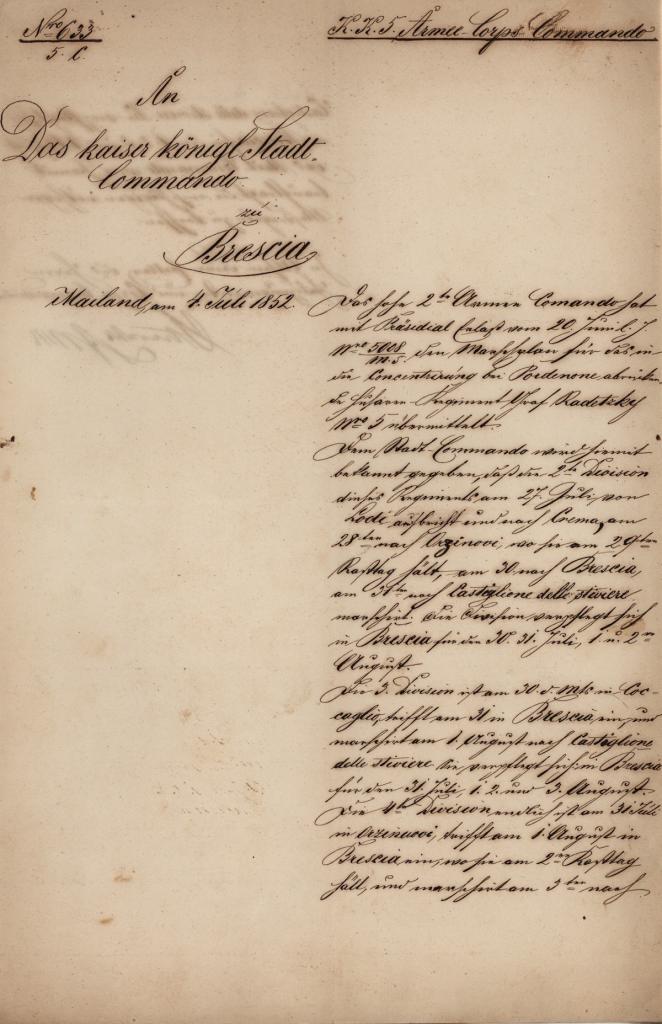 Nro 633
5. C.
K. K. 5. Armee-Corps-Commando
An
Das kaiser königl Stadt-
Commando
zu
Brescia
Mailand, am 4. Juli 1852.
Das hohe 2te Armee Comando hat
mit Präsidial Erlaß vom 20. Juni l. J.
Nro 5008 den Marschplan für das in
die Concentrirung bei Pordenone abrücken-
de Husaren-Regiment Graf Radetzky
Nro 5 übermittelt.
Dem Stadt-Commando wird hiemit
bekannt gegeben, daß die 2te Division
dieses Regiments am 27. Juli, von
Lodi aufbricht und nach Crema, am
28ten nach Orzinovi, wo sie am 29ten
Rasttag hält, am 30. nach Brescia,
am 31ten nach Castiglione delle stiviere
marschirt. Die Division verpflegt sich
in Brescia für den 30. 31. Juli, 1. u. 2n
August.
Die 3. Division ist am 30. d. Mts. in Coc-
caglio, trifft am 31 in Brescia ein, und
marschirt am 1. August nach Castiglione
delle stiviere. Sie verpflegt sich in Brescia
für den 31 Juli, 1. 2. und 3. August.
Die 4te Division endlich ist am 31 Juli
in Orzinuovi, trifft am 1. August in
Brescia ein, wo sie am 2ten Rasttag
hält, und marschirt am 3ten nach